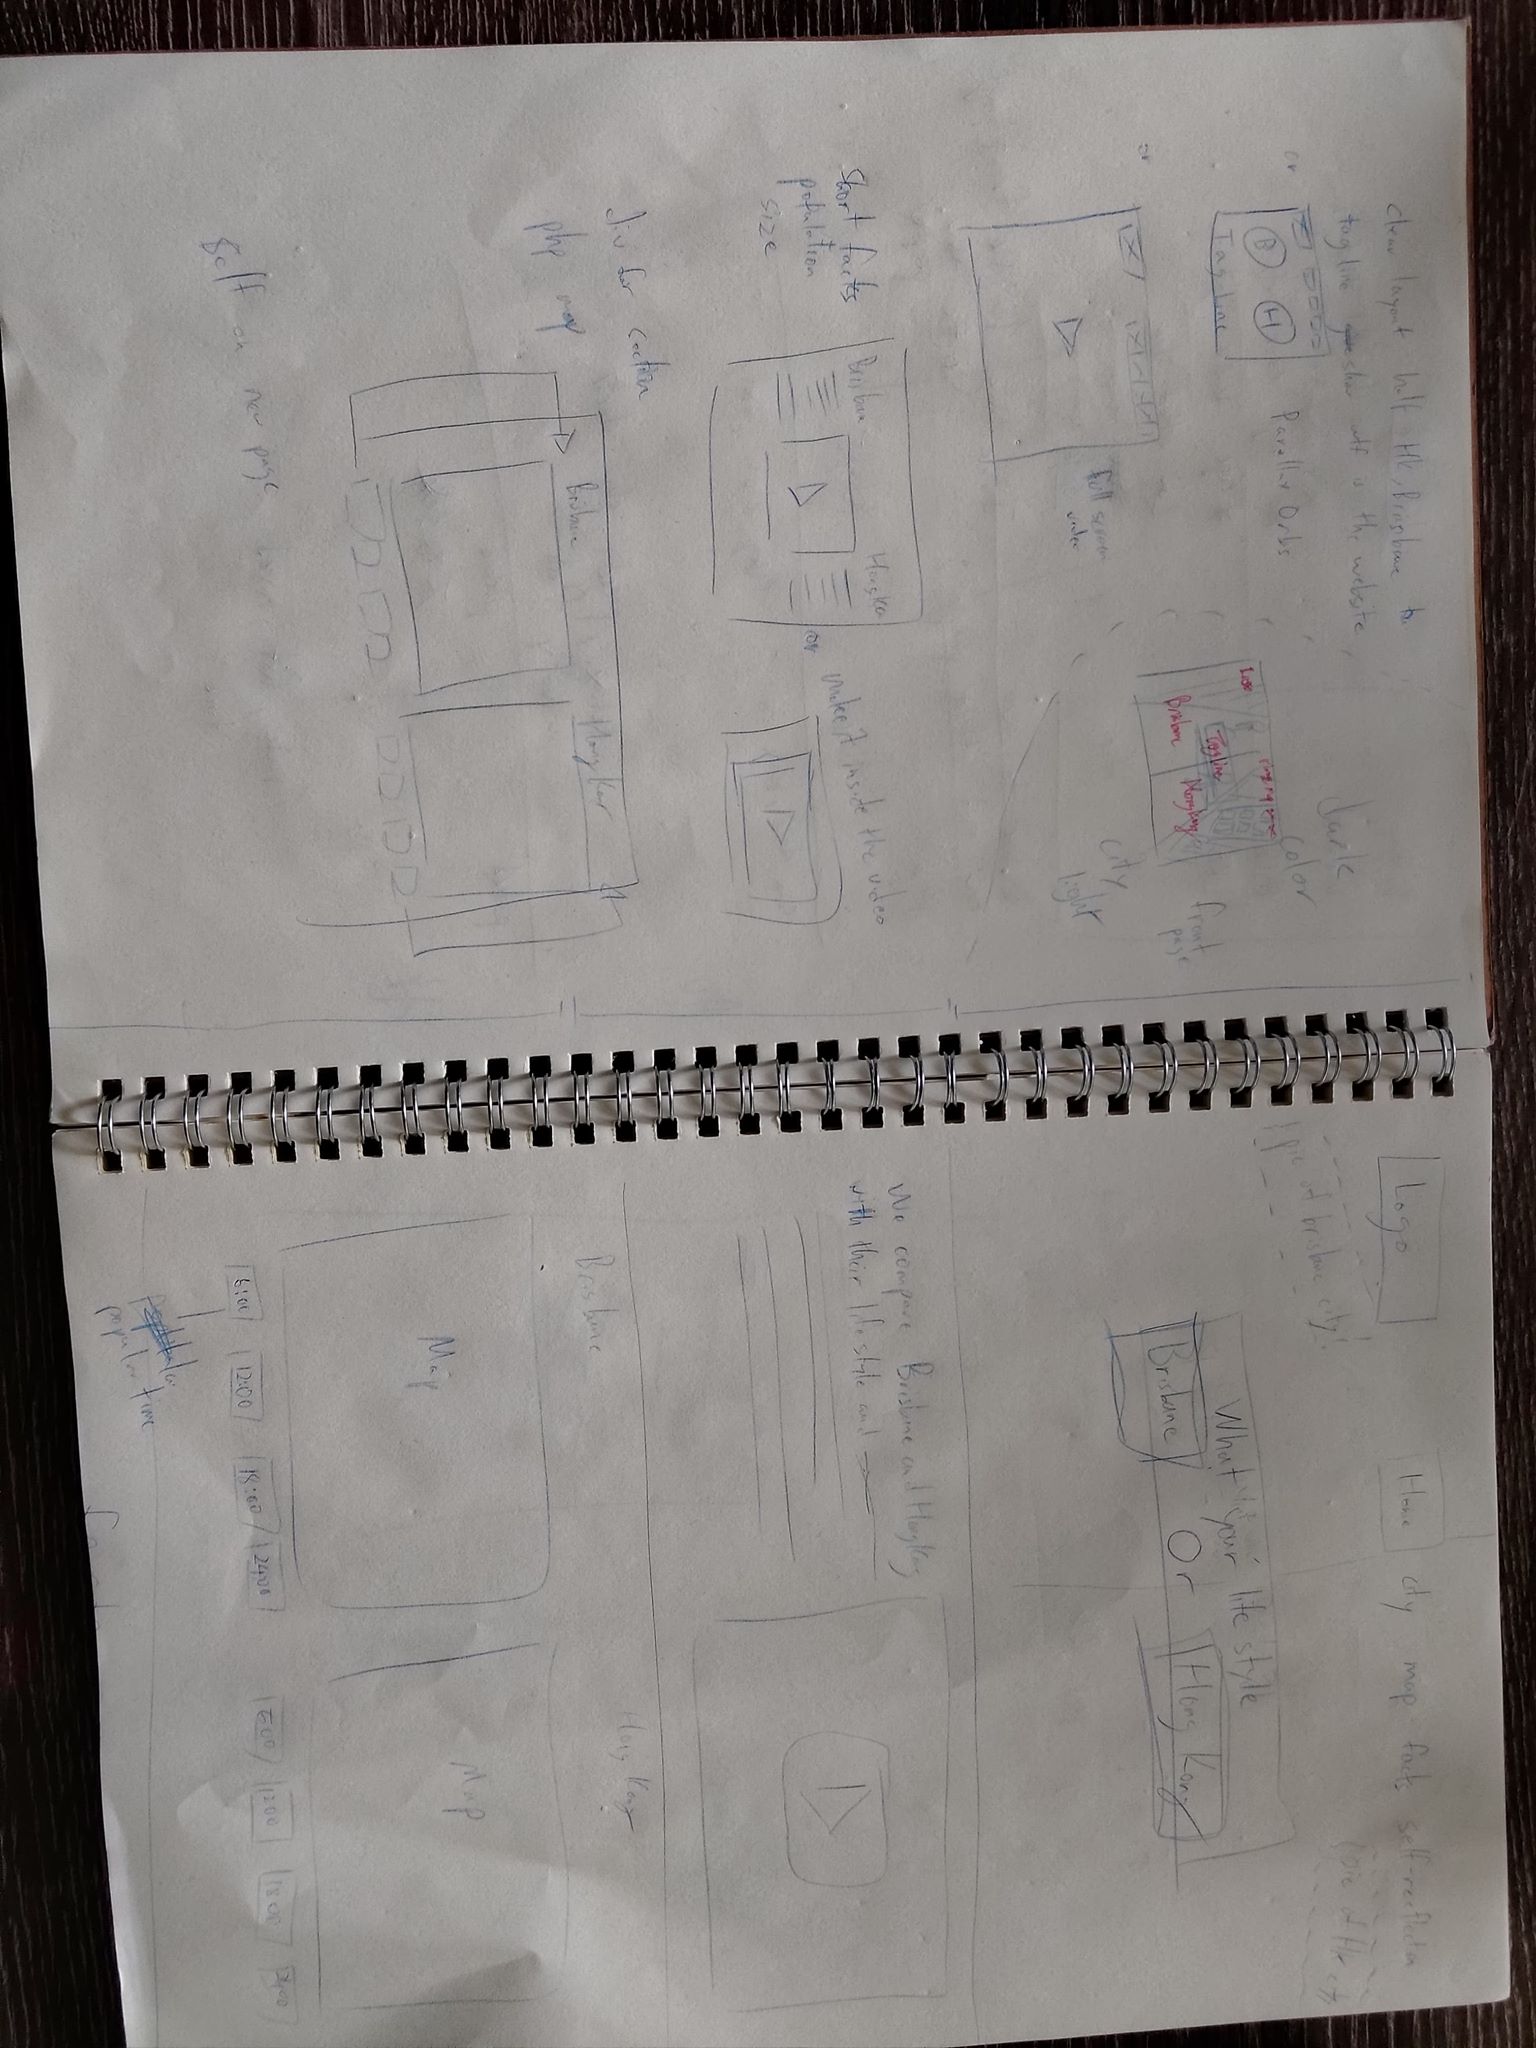 clear layout half HK, Brisbane
tagline show wtf is the website
or
B H
Tag-line
Parallax Orbs
dark
color
Logo
Tagline
Brisbane Hongkong
front
page
city
light
or
full screen
video
Short facts
population
size
Brisbane
Hongko
or
make it inside the video
div for section
php map
Brisbane
Hong Kong
Self on new page
Logo
Home city map facts self-reeflection
pic of brisbane city
pic of HK city
What your life style
Brisbane Or Hong Kong
We compare Brisbane and HongKong
with their life style and
Brisbane
Hong Kong
Map
Map
6:00 12:00 18:00 24:00
6:00 12:00 18:00 24:00
popular time